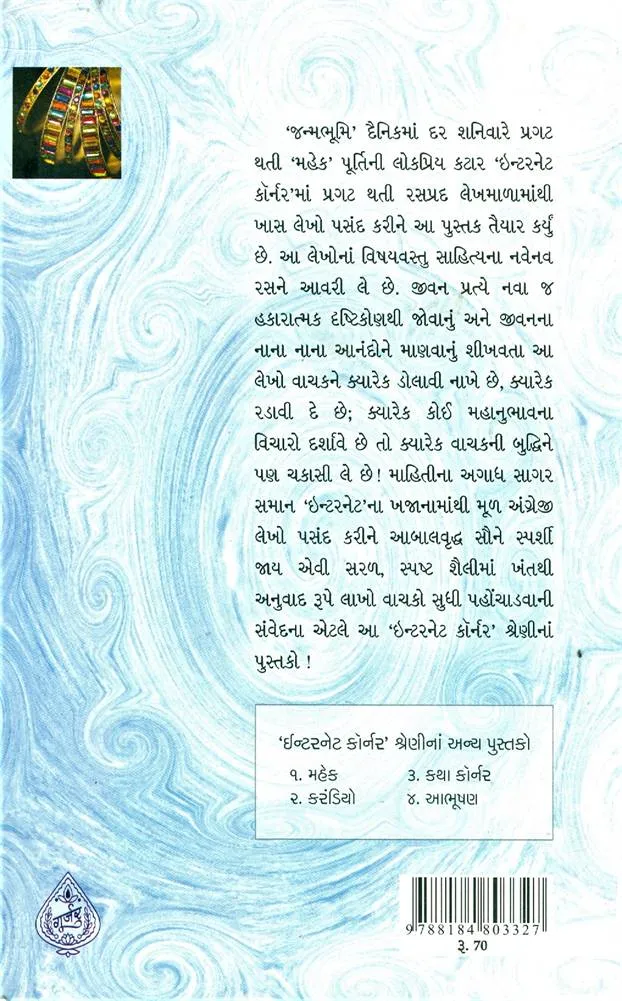 ‘જન્મભૂમિ’ દૈનિકમાં દર શનિવારે પ્રગટ
થતી ‘મહેક’ પૂર્તિની લોકપ્રિય કટાર ‘ઇન્ટરનેટ
કૉર્નર’માં પ્રગટ થતી રસપ્રદ લેખમાળામાંથી
ખાસ લેખો પસંદ કરીને આ પુસ્તક તૈયાર કર્યું
છે. આ લેખોનાં વિષયવસ્તુ સાહિત્યના નવેનવ
રસને આવરી લે છે. જીવન પ્રત્યે નવા જ
હકારાત્મક દૃષ્ટિકોણથી જોવાનું અને જીવનના
નાના નાના આનંદોને માણવાનું શીખવતા આ
લેખો વાચકને ક્યારેક ડોલાવી નાખે છે, ક્યારેક
રડાવી દે છે; ક્યારેક કોઈ મહાનુભાવના
વિચારો દર્શાવે છે તો ક્યારેક વાચકની બુદ્ધિને
પણ ચકાસી લે છે! માહિતીના અગાધ સાગર
સમાન ‘ઇન્ટરનેટ’ના ખજાનામાંથી મૂળ અંગ્રેજી
લેખો પસંદ કરીને આબાલવૃદ્ધ સૌને સ્પર્શી
જાય એવી સરળ, સ્પષ્ટ શૈલીમાં ખંતથી
અનુવાદ રૂપે લાખો વાચકો સુધી પહોંચાડવાની
સંવેદના એટલે આ ‘ઇન્ટરનેટ કૉર્નર’ શ્રેણીનાં
પુસ્તકો !
‘ઈન્ટરનેટ કૉર્નર’ શ્રેણીનાં અન્ય પુસ્તકો
૧. મહેક ૩. કથા કૉર્નર
૨. કરંડિયો ૪. આભૂષણ
ગૂર્જર
9 788184 803327
રૂ. 70